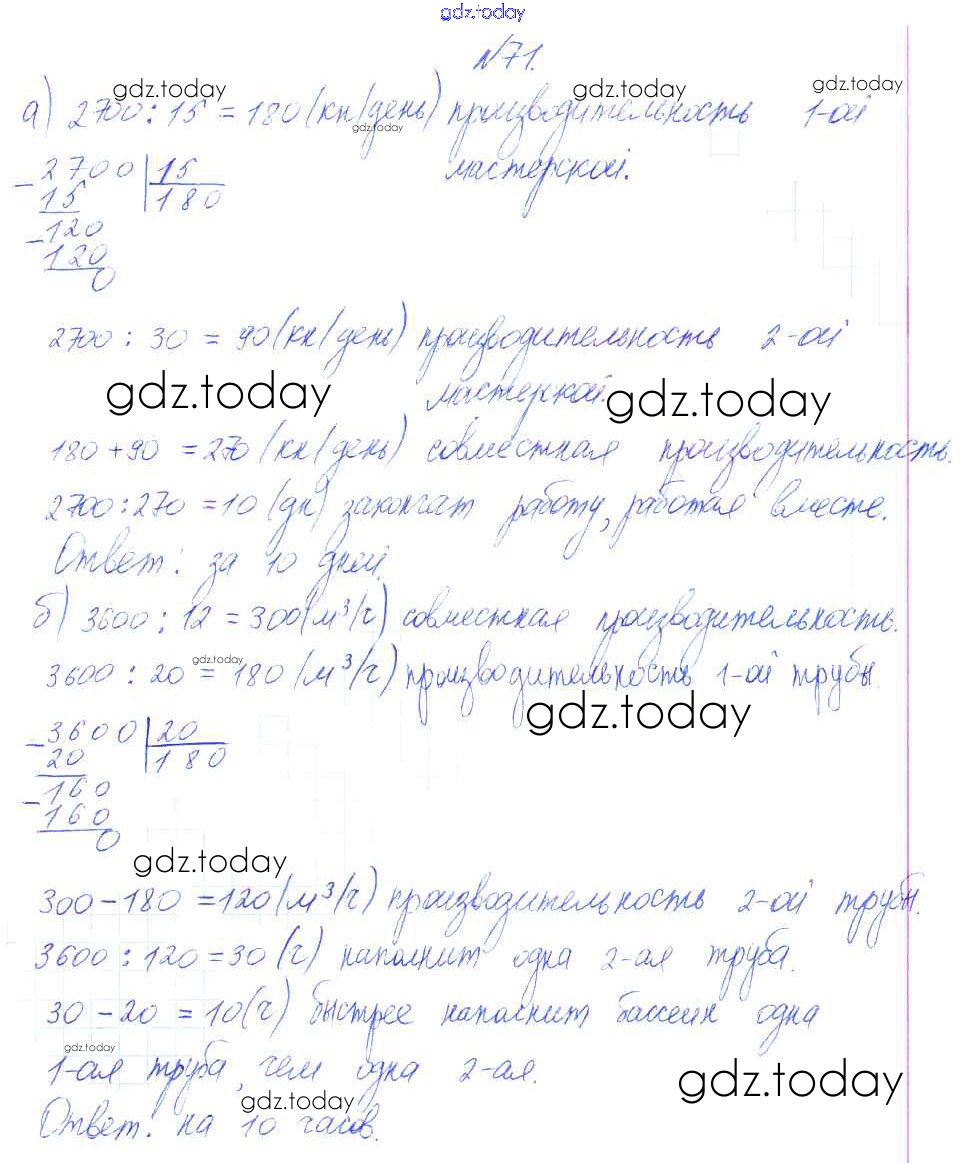 gdz.today
№71.
gdz.today gdz.today gdz.today
а) 2700 : 15 = 180 (кн/день) производительность 1-ой
gdz.today
мастерской.
- 2700 | 15
15 | 180
- 120
120
0
2700 : 30 = 90 (кн/день) производительность 2-ой
gdz.today мастерской. gdz.today
180 + 90 = 270 (кн/день) совместная производительность.
2700 : 270 = 10 (дн) закончат работу, работая вместе.
Ответ: за 10 дней.
б) 3600 : 12 = 300 (м³/ч) совместная производительность.
gdz.today
3600 : 20 = 180 (м³/ч) производительность 1-ой трубы.
gdz.today
- 3600 | 20
20 | 180
- 160
160
0
gdz.today
300 - 180 = 120 (м³/ч) производительность 2-ой трубы.
3600 : 120 = 30 (ч) наполнит одна 2-ая труба.
30 - 20 = 10 (ч) быстрее наполнит бассейн одна
gdz.today
1-ая труба, чем одна 2-ая.
gdz.today gdz.today
Ответ: на 10 часов.